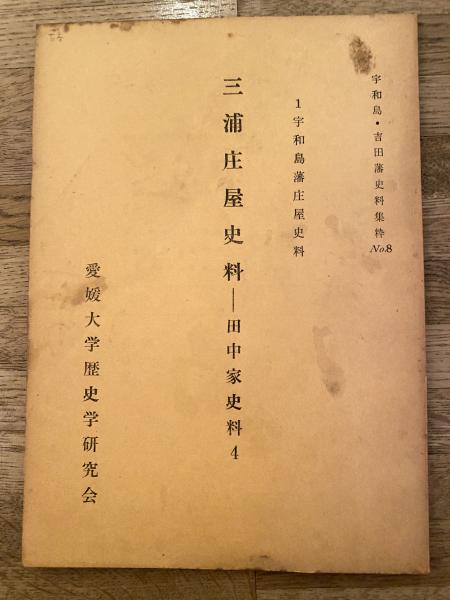 宇和島・吉田藩史料集粋 No.8
1 宇和島藩庄屋史料
三浦庄屋史料―田中家史料4
愛媛大学歴史学研究会